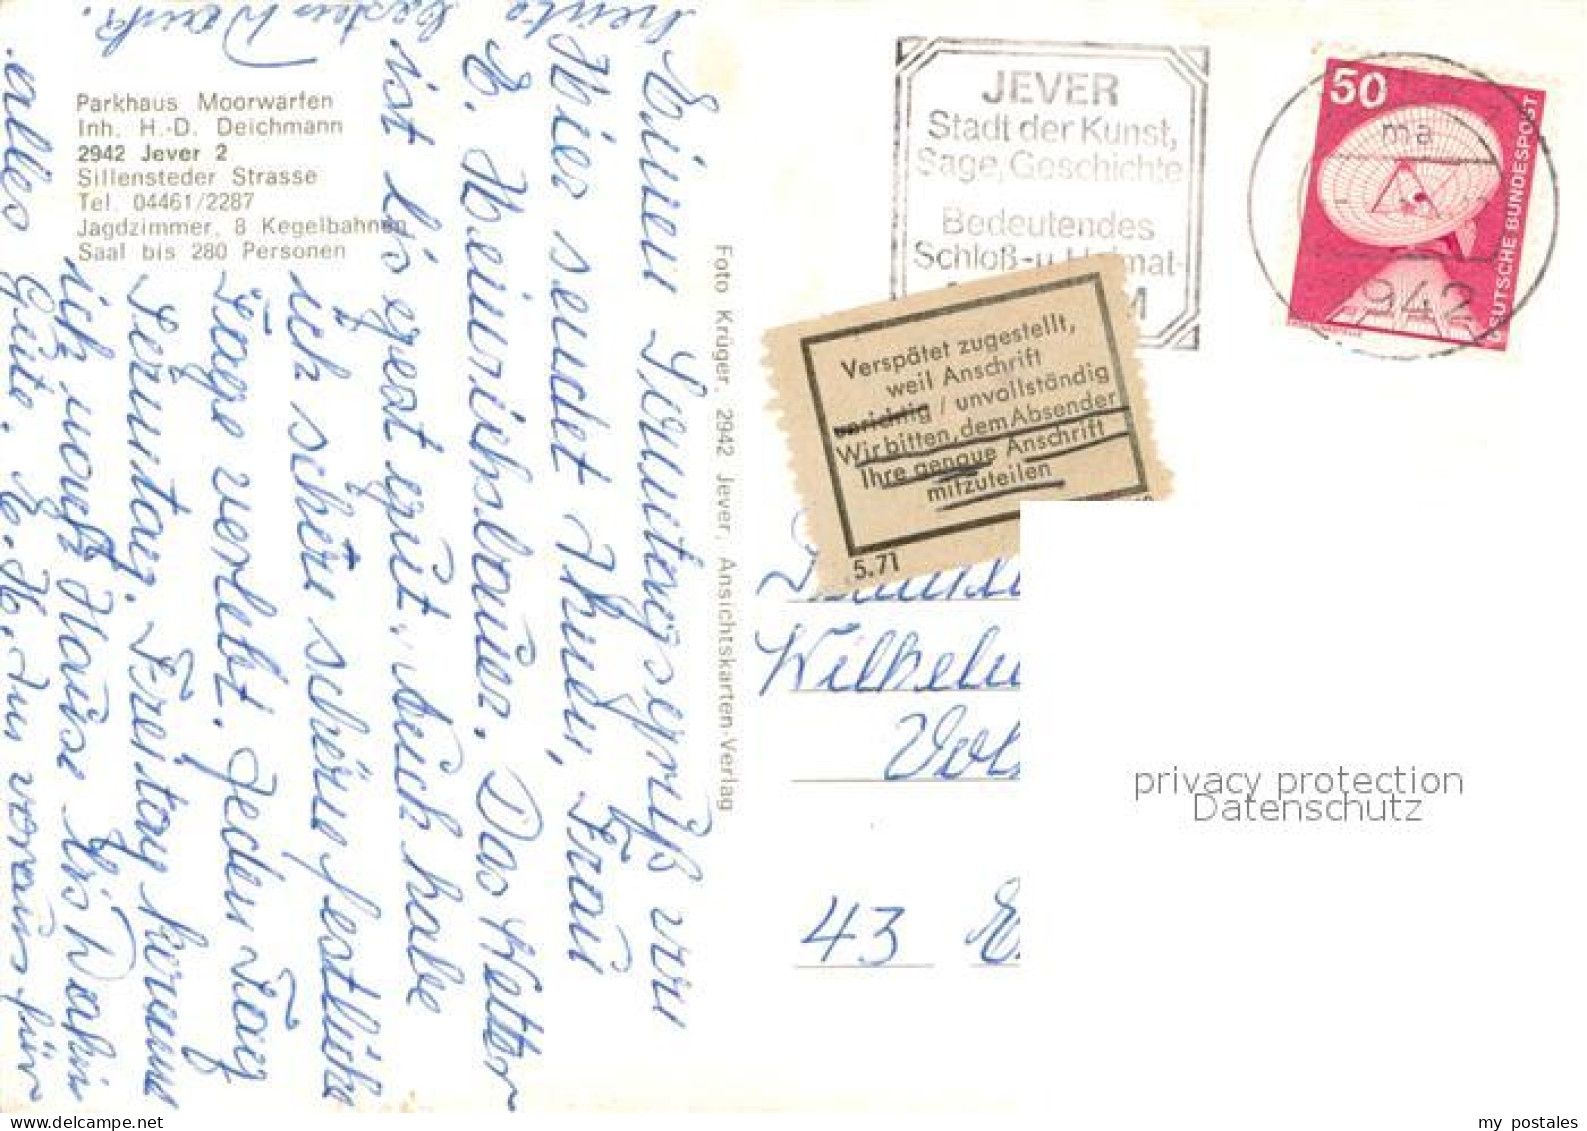 Parkhaus Moorwarfen
Inh. H.-D. Deichmann
2942 Jever 2
Sillensteder Strasse
Tel. 04461/2287
Jagdzimmer, 8 Kegelbahnen
Saal bis 280 Personen
Einen Sonntagsgruß von
Hier sendet Ihnen, Frau
E. Heinrichsbauer. Das Wetter
ist bis jetzt gut. Auch habe
ich schöne schöne festliche
Tage verlebt. Jeden Tag
Sonntag. Freitag komme
ich nach Hause. Bis Dahin
alles Gute. im voraus für
besten Dank.
Foto Krüger, 2942 Jever, Ansichtskarten-Verlag
JEVER
Stadt der Kunst,
Sage, Geschichte
Bedeutendes
Schloß-u
50
DEUTSCHE BUNDESPOST
ma
2942
Verspätet zugestellt,
weil Anschrift
unrichtig / unvollständig
Wir bitten, dem Absender
Ihre genaue Anschrift
mitzuteilen
5.71
43 E
privacy protection
Datenschutz
my postales